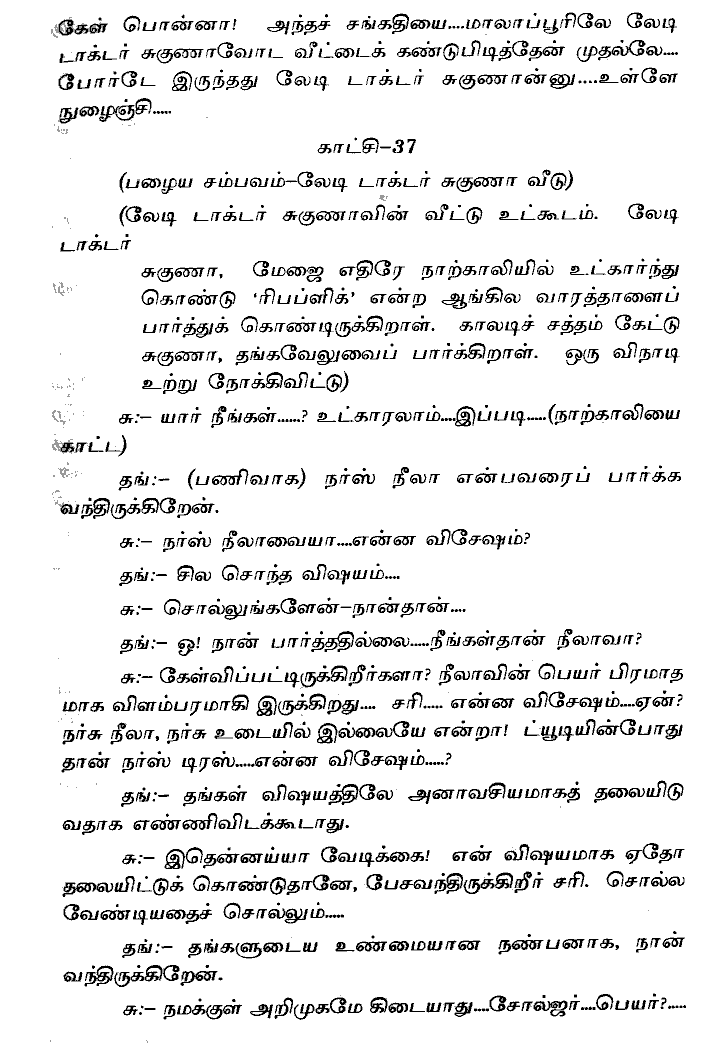 கேள் பொன்னா! அந்தச் சங்கதியை....மாலாப்பூரிலே லேடி
டாக்டர் சுகுணாவோட வீட்டைக் கண்டுபிடித்தேன் முதல்லே....
போர்டே இருந்தது லேடி டாக்டர் சுகுணான்னு....உள்ளே
நுழைஞ்சி.....
காட்சி-37
(பழைய சம்பவம்-லேடி டாக்டர் சுகுணா வீடு)
(லேடி டாக்டர் சுகுணாவின் வீட்டு உட்கூடம். லேடி
டாக்டர்
சுகுணா, மேஜை எதிரே நாற்காலியில் உட்கார்ந்து
கொண்டு 'ரிபப்ளிக்' என்ற ஆங்கில வாரத்தாளைப்
பார்த்துக் கொண்டிருக்கிறாள். காலடிச் சத்தம் கேட்டு
சுகுணா, தங்கவேலுவைப் பார்க்கிறாள். ஒரு விநாடி
உற்று நோக்கிவிட்டு)
சு:- யார் நீங்கள்......? உட்காரலாம்....இப்படி.....(நாற்காலியை
காட்ட)
தங்:- (பணிவாக) நர்ஸ் நீலா என்பவரைப் பார்க்க
வந்திருக்கிறேன்.
சு:- நர்ஸ் நீலாவையா....என்ன விசேஷம்?
தங்:- சில சொந்த விஷயம்....
சு:- சொல்லுங்களேன்-நான்தான்....
தங்:- ஓ! நான் பார்த்ததில்லை.....நீங்கள்தான் நீலாவா?
சு:- கேள்விப்பட்டிருக்கிறீர்களா? நீலாவின் பெயர் பிரமாத
மாக விளம்பரமாகி இருக்கிறது.... சரி..... என்ன விசேஷம்....ஏன்?
நர்சு நீலா, நர்சு உடையில் இல்லையே என்றா! ட்யூடியின்போது
தான் நர்ஸ் டிரஸ்.....என்ன விசேஷம்.....?
தங்:- தங்கள் விஷயத்திலே அனாவசியமாகத் தலையிடு
வதாக எண்ணிவிடக்கூடாது.
சு:- இதென்னய்யா வேடிக்கை! என் விஷயமாக ஏதோ
தலையிட்டுக் கொண்டுதானே, பேசவந்திருக்கிறீர் சரி. சொல்ல
வேண்டியதைச் சொல்லும்.....
தங்:- தங்களுடைய உண்மையான நண்பனாக, நான்
வந்திருக்கிறேன்.
சு:- நமக்குள் அறிமுகமே கிடையாது....சோல்ஜர்....பெயர்?.....